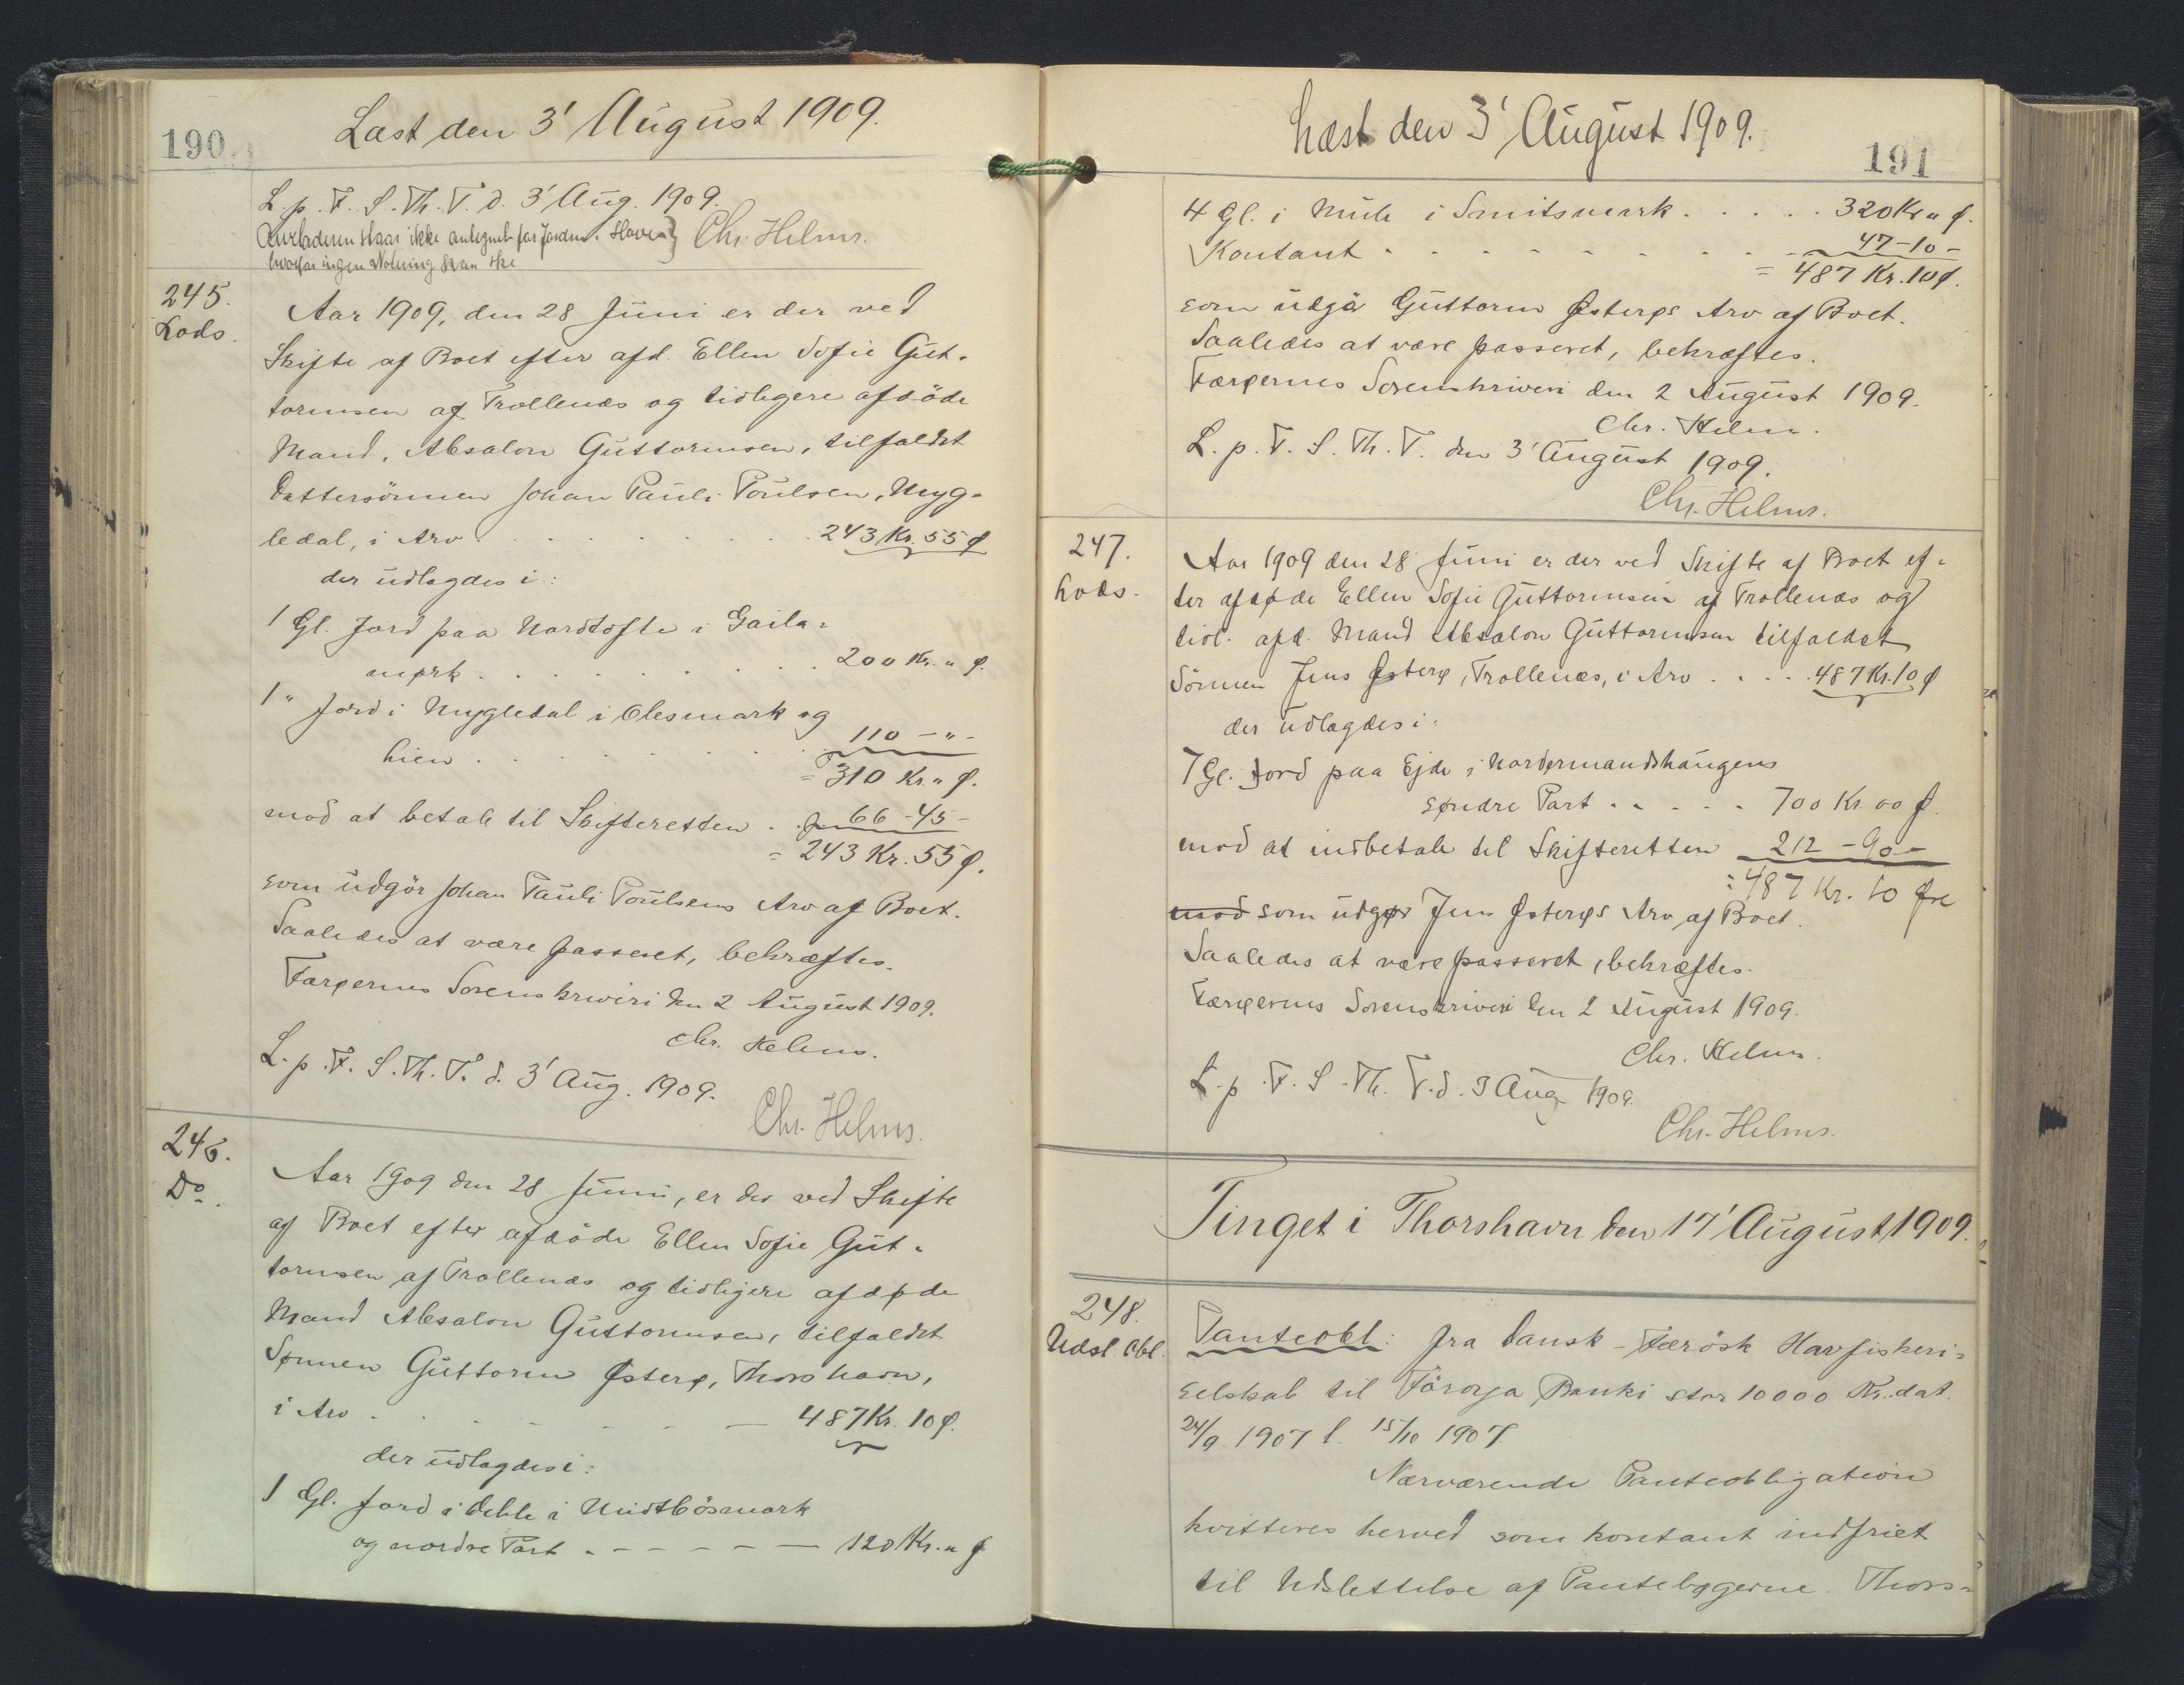 190
Læst den 3' August 1909.
L. p. F. S. Th. T. d. 3' Aug. 1909.
staar ikke antegnet for Jorden i Haven } Chr. Helms.
hvorfor ingen Notering kan ske
245.
Lods.
Aar 1909, den 28 Juni er der ved
Skifte af Boet efter afd. Ellen Sofie Gut-
tormsen af Trollenæs og tidligere afdöde
Mand, Absalon Guttormsen, tilfaldet
Dattersönnen Johan Pauli Poulsen, Myg-
ledal, i Arv . . . . . . . . 243 Kr. 55 Ø
der udlagdes i:
1 Gl. Jord paa Nordtofte i Gaila-
mørk . . . . . . . . 200 Kr. " Ø.
1 " Jord i Mygledal i Olesmark og
hien . . . . . . . . 110 - " -
= 310 Kr. " Ø.
mod at betale til Skifteretten . . 66 - 45 -
= 243 Kr. 55 Ø.
som udgör Johan Pauli Poulsens Arv af Boet.
Saaledes at være passeret, bekræftes.
Færøernes Sorenskriveri den 2 August 1909.
Chr. Helms.
L. p. F. S. Th. T. d. 3' Aug. 1909.
Chr. Helms.
246.
Do.
Aar 1909 den 28 Juni, er der ved Skifte
af Boet efter afdöde Ellen Sofie Gut-
tormsen af Trollenæs og tidligere afdøde
Mand Absalon Guttormsen, tilfaldet
Sønnen Guttorm Østerø, Thorshavn,
i Arv . . . . . . 487 Kr. 10 Ø.
der udlagdes i:
1 Gl. Jord i Deble i Midtbösmark
og nordre Part . - - - - - 120 Kr. " Ø
191
Læst den 3' August 1909.
4 Gl. i Mule i Smitsmark . . . . . 320 Kr " Ø.
Kontant . . . . . . . . 47 - 10 -
= 487 Kr. 10 Ø.
som udgø Guttorm Østerøs Arv af Boet.
Saaledes at være passeret, bekræftes.
Færøernes Sorenskriveri den 2 August 1909.
Chr. Helms.
L. p. F. S. Th. T. den 3' August 1909.
Chr. Helms.
247.
Lods.
Aar 1909 den 28 Juni er der ved Skifte af Boet ef-
ter afdøde Ellen Sofie Guttormsen af Trollenæs og
tidl. afd. Mand Absalon Guttormsen tilfaldet
Sönnen Jens Østerø, Trollenæs, i Arv . . . . 487 Kr. 10 Ø
der udlagdes i:
7 Gl. Jord paa Ejde i Nordermandshaugens
søndre Part . . . . . 700 Kr 00 Ø.
mod at indbetale til Skifteretten 212 - 90 -
= 487 Kr. 10 Øre
mod som udgør Jens Østerøs Arv af Boet.
Saaledes at være passeret, bekræftes.
Færøernes Sorenskriveri den 2 August 1909.
Chr. Helms.
L. p. F. S. Th. T. d. 3 Aug 1909.
Chr. Helms.
Tinget i Thorshavn den 17' August 1909.
248.
Udsl. Obl.
Panteobl: fra Dansk-Færösk Havfiskeri-
selskab til Föroya Banki stor 10000 Kr. dat.
24/9 1907 l. 15/10 1907.
Nærværende Panteobligation
kvitteres herved som kontant indfriet
til Udslettelse af Pantebøgerne. Thors-